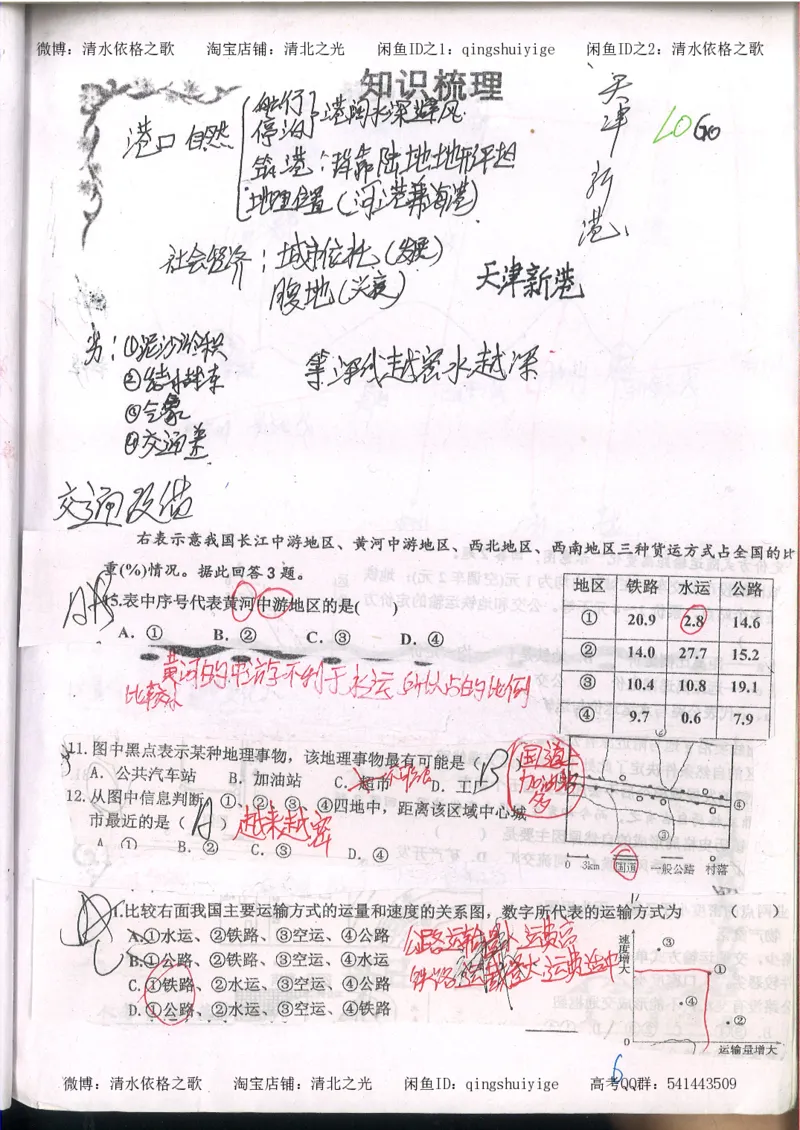 微博：清水依格之歌 淘宝店铺：清北之光 闲鱼ID之1：qingshuiyige 闲鱼ID之2：清水依格之歌
知识梳理
天津新港
LOGo
港口 自然
航行 停泊 港阔水深避风
筑港：背靠陆地地形平坦
地理位置（河港兼海港）
社会经济：城市依托（发展）
腹地（兴衰）
天津新港
劣：①泥沙淤积
②结冰封冻
③气象
④交通差
等深线越密水越深
交通设备
右表示意我国长江中游地区、黄河中游地区、西北地区、西南地区三种货运方式占全国的比
重(%)情况。据此回答3题。
15.表中序号代表黄河中游地区的是( )
A. ① B. ② C. ③ D. ④
地区 铁路 水运 公路
① 20.9 2.8 14.6
② 14.0 27.7 15.2
③ 10.4 10.8 19.1
④ 9.7 0.6 7.9
黄河的中游不利于水运 所以占的比例
比较小
11. 图中黑点表示某种地理事物，该地理事物最有可能是（B）
A. 公共汽车站 B. 加油站 C. 超市 D. 工厂
国道上
加油站
多
12. 从图中信息判断，①、②、③、④四地中，距离该区域中心城
市最近的是（A）越来越密
A ① B. ② C. ③ D. ④
④
③
0 3km 国道 一般公路 村落
1.比较右面我国主要运输方式的运量和速度的关系图，数字所代表的运输方式为 （ ）
A.①水运、②铁路、③空运、④公路
B.①公路、②铁路、③空运、④水运
C.①铁路、②水运、③空运、④公路
D.①公路、②水运、③空运、④铁路
公路运输量小 运费高
铁路运输量大 运费适中
速度增大
③
①
④
②
0
运输量增大
6
微博：清水依格之歌 淘宝店铺：清北之光 闲鱼ID：qingshuiyige 高考QQ群：541443509